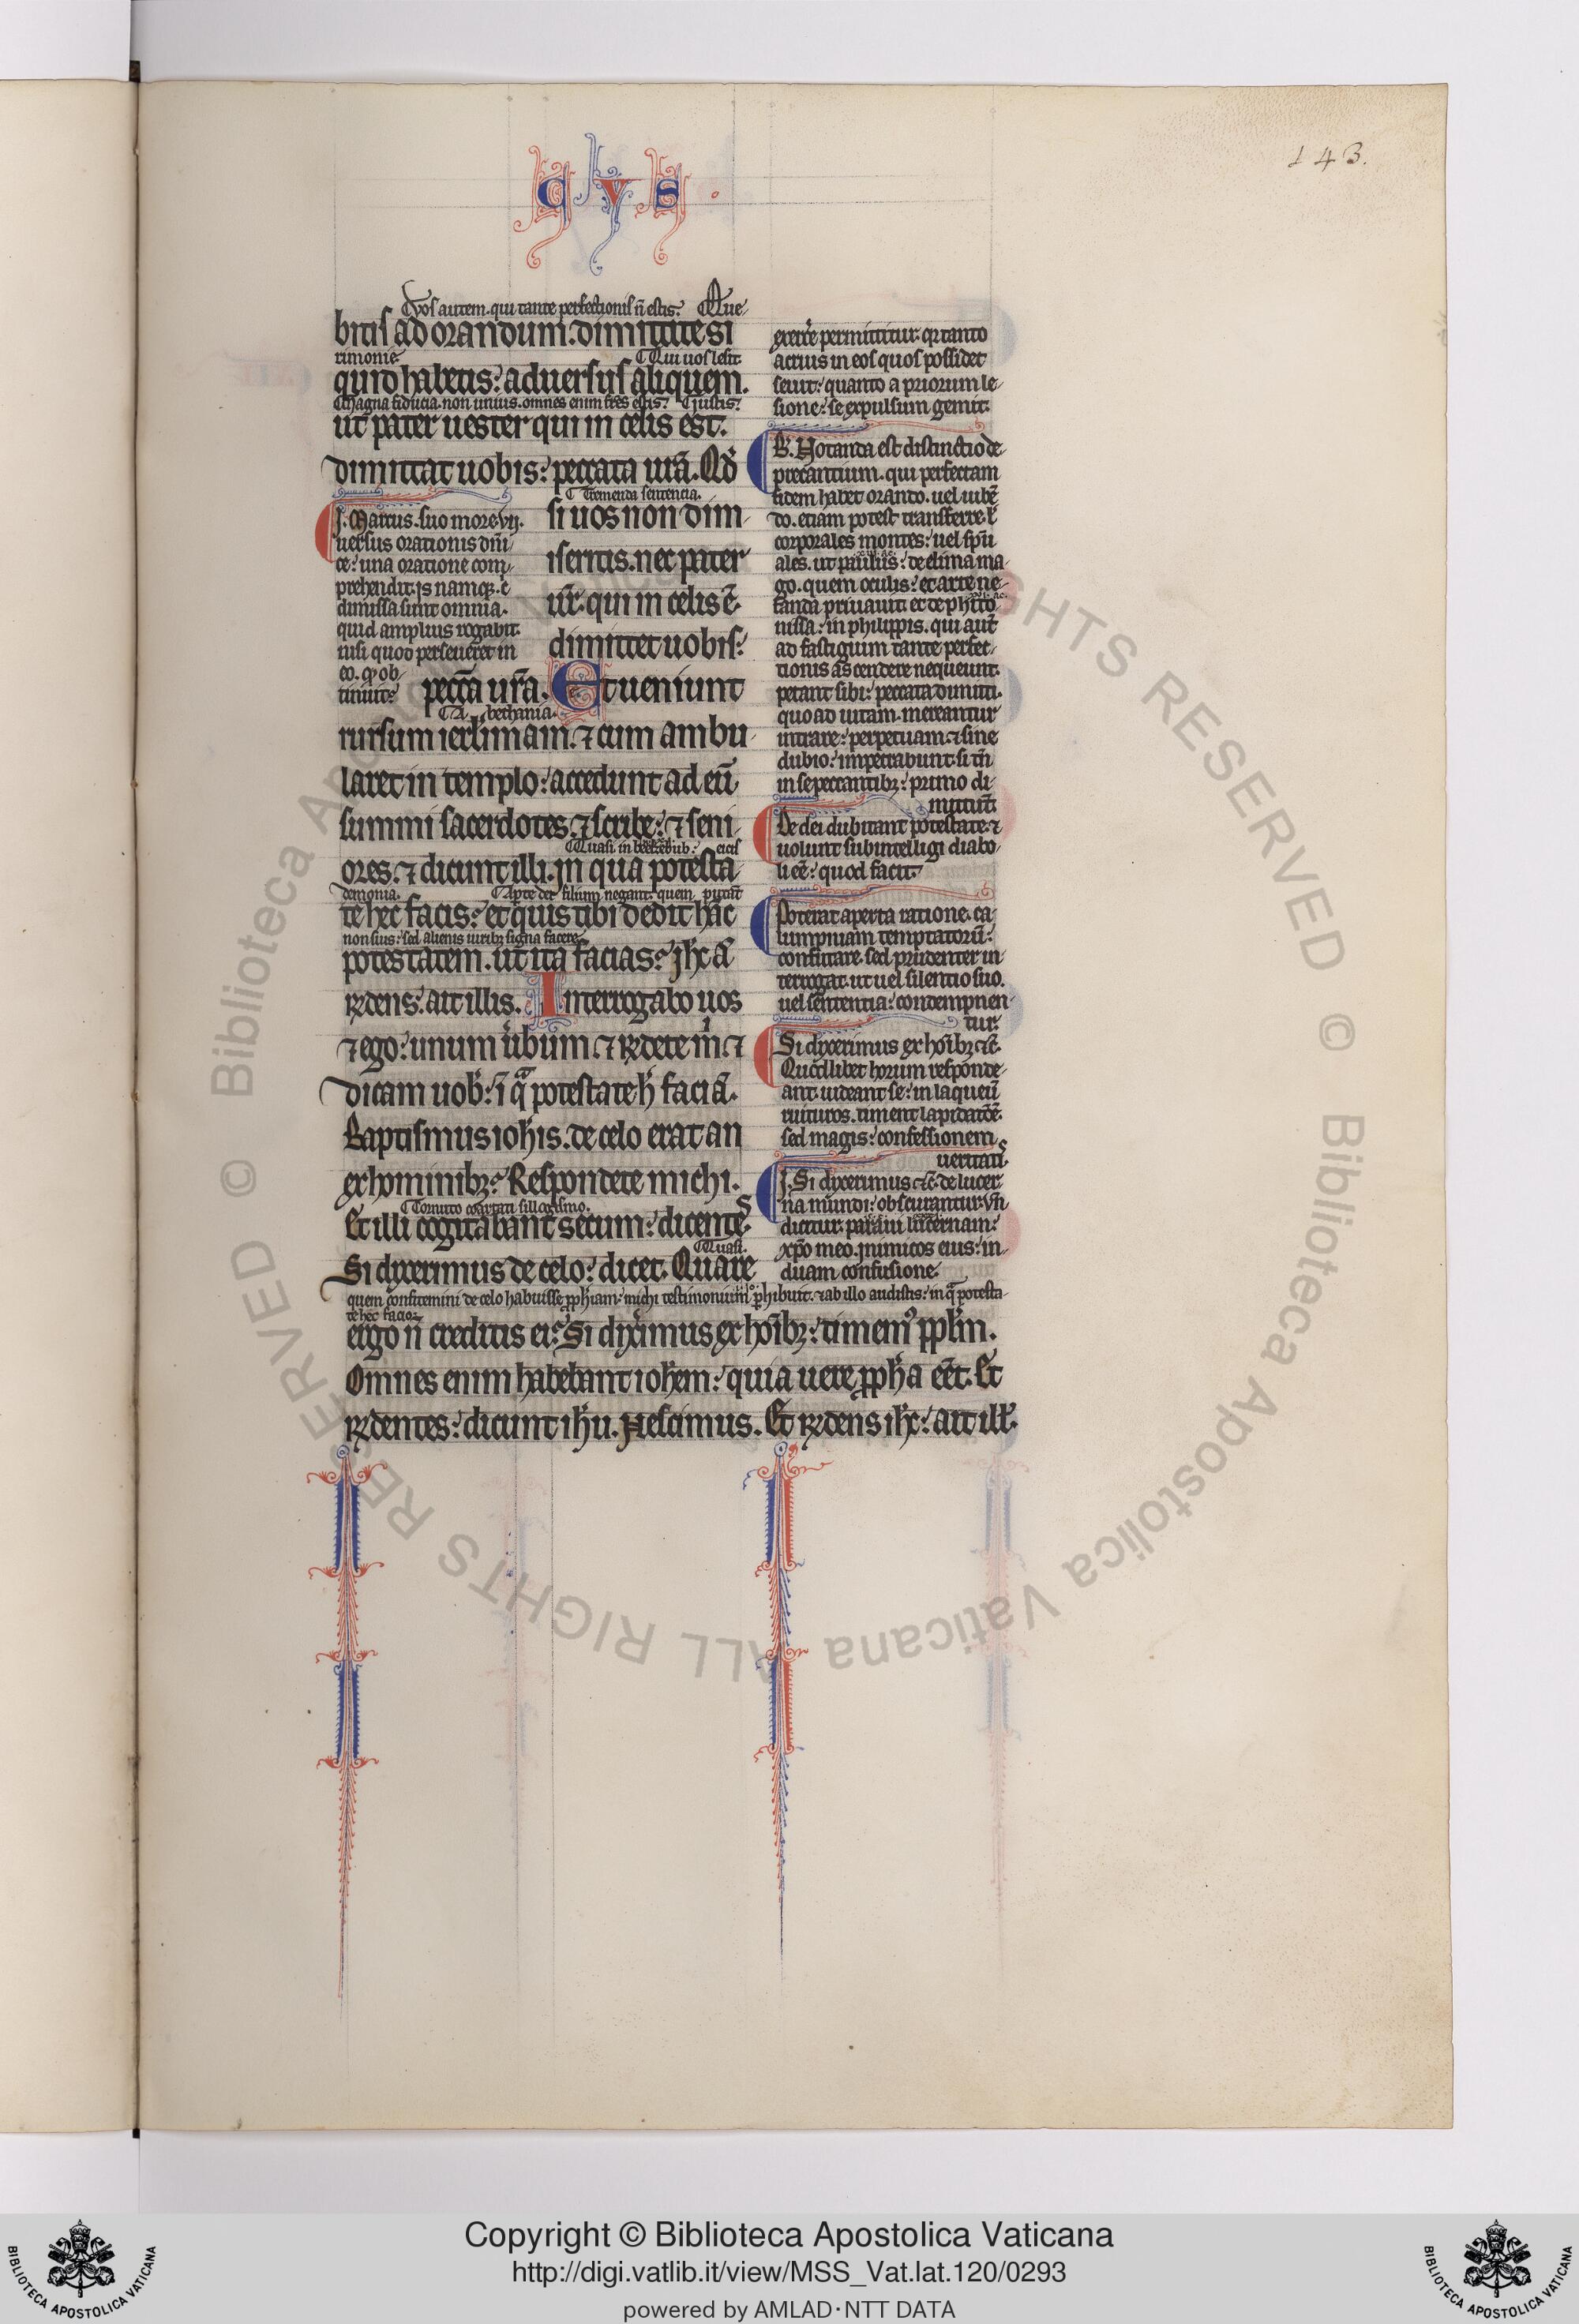 143.
CVS.
Vos autem. qui tante perfectionis ñ estis. Que
bitis ad orandum. dimittite si
rimonie. Qui uos lesit.
quid habetis: aduersus aliquem.
Magna fiducia. non unius. omnes enim fr̃es estis. Iustis.
ut pater uester qui in celis est.
dimittat uobis: peccata ur̃a. Qd̾
Tremenda sentencia.
si uos non dim
iseritis. nec pater
ur̃. qui in celis ẽ.
dimittet uobis:
pecc̃a ur̃a. Et ueniunt
A bethania.
rursum ierl̾imam. ⁊ cum ambu
laret in templo: accedunt ad eũ
summi sacerdotes. ⁊ scribe: ⁊ seni
Quasi in beelzebub. eicis
ores. ⁊ dicunt illi. In qua potesta
demonia. Aperte dei filium negant. quem putãt
te hec facis: et quis tibi dedit hãc
non suis: sed alienis uirib; signa facere.
potestatem. ut ita facias: ih̾c aũ
r̃ndens: ait illis. Interrogabo uos
⁊ ego: unum ũbum. ⁊ r̃ndete m̾. ⁊
dicam uob̾: ĩ q̃ potestate h̾ faciã.
Baptismus ioh̾is. de celo erat an
ex hominib;: Respondete michi.
Cornuto coartati sillogismo.
Et illi cogitabant secum: dicentes
Quasi.
Si dixerimus de celo: dicet. Quare
quem confitemini de celo habuisse ꝓph̾iam: michi testimonium ꝑhibuit. ⁊ ab illo audistis: in q̃ potesta
te hec facio.
ergo ñ creditis ei: Si dix̾imus ex hoĩb;: timemꝰ ppl̾m.
Omnes enim habebant ioh̾em: quia uere ꝓph̾a eẽt. Et
r̃ndentes: dicunt ih̾u. Nescimus. Et r̃ndens ih̾c: ait ill̾.
I. Marcus. suo more. vij.
uersus orationis dñi
ce: una oratione com
prehendit. Is namq;. c̾
dimissa sunt omnia.
quid amplius rogabit.
nisi quod perseueret in
eo. qd̾ ob
tinuit:
exerc̾e permittitur. qr tanto
acrius in eos quos possidet
seuit: quanto a priorum le
sione: se expulsum gemit.
B. Notanda est distinctio de
precantium. qui perfectam
fidem habet orando. uel iubẽ
do. etiam potest transferre. ł
corporales montes: uel sp̃u
ales. ut paulus: de elima ma
go. quem oculis: et arte ne
fanda priuauit et de phito
nissa: in philippis. qui aut̃
ad fastigium tante perfec
tionis ascendere nequeunt.
petant sibi: peccata dimitti.
quo ad uitam. mereantur
intrare: perpetuam. ⁊ sine
dubio: impetrabunt si tñ
in se peccantib;: primo di
mittunt̃
De dei dubitant potestate. ⁊
uolunt subintelligi diabo
li eẽ: quod facit.
Poterat aperta ratione. ca
lumpniam temptatorũ:
confutare. sed prudenter in
terrogat. ut uel silentio suo.
uel sententia: contempnen
tur.
Si dixerimus ex hoĩb; ⁊c̃.
Quodlibet horum responde
ant. uideant se: in laqueũ
ruituros. timent lapidatõẽ.
sed magis: confessionem
ueritatis.
I. Si dixerimus ⁊c̃. de lucer
na mundi: obscurantur. vñ
dicitur. paraui lucernam:
xp̃o meo. Inimicos eius: in
duam confusione.
Copyright © Biblioteca Apostolica Vaticana
http://digi.vatlib.it/view/MSS_Vat.lat.120/0293
powered by AMLAD·NTT DATA
BIBLIOTECA APOSTOLICA VATICANA
BIBLIOTECA APOSTOLICA VATICANA
© Biblioteca Apostolica Vaticana ALL RIGHTS RESERVED © Biblioteca Apostolica Vaticana ALL RIGHTS RESERVED